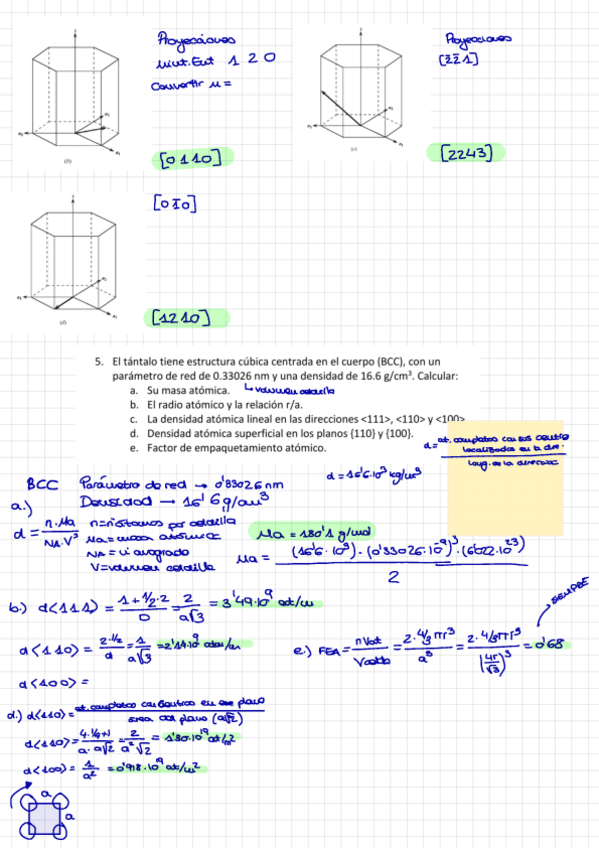 Proyecciones
unit. Ent 1 2 0
Convertir u =
[0 1 1 0]
(b)
Proyecciones
[2 2̄ 1]
[2243]
(c)
[0 1̄ 0]
[1210]
(d)
5. El tántalo tiene estructura cúbica centrada en el cuerpo (BCC), con un
parámetro de red de 0.33026 nm y una densidad de 16.6 g/cm³. Calcular:
a. Su masa atómica. ↳ volumen celdilla
b. El radio atómico y la relación r/a.
c. La densidad atómica lineal en las direcciones <111>, <110> y <100>
d. Densidad atómica superficial en los planos {110} y {100}.
e. Factor de empaquetamiento atómico.
d = at. completos con sus centros localizados en la dir. / long. de la dirección
BCC Parámetro de red → 0'33026 nm
d = 16'6·10³ kg/m³
a.) Densidad → 16'6 g/cm³
d = n·Ma / NA·V³
n = nº átomos por celdilla
Ma = masa atómica
NA = nº avogadro
V = volumen celdilla
Ma = 180'1 g/mol
Ma = (16'6·10³)·(0'33026·10⁻⁹)³·(6'022·10²³) / 2
b.) d<111> = 1+1/2·2 / D = 2 / a√3 = 3'49·10⁹ at/m
d<110> = 2·1/2 / d = 1 / a√3 = 2'14·10⁹ atom/m
d<100> =
e.) FEA = nVat / Vcelda = 2·4/3πr³ / a³ = 2·4/3πr³ / (4r/√3)³ = 0'68
SIEMPRE
d.) d<110> = at. completos con centros en ese plano / área del plano (a√2)
d<110> = 4·1/4+1 / a·a√2 = 2 / a²√2 = 1'30·10¹⁹ at/m²
d<100> = 1 / a² = 0'918·10¹⁹ at/m²
a
a